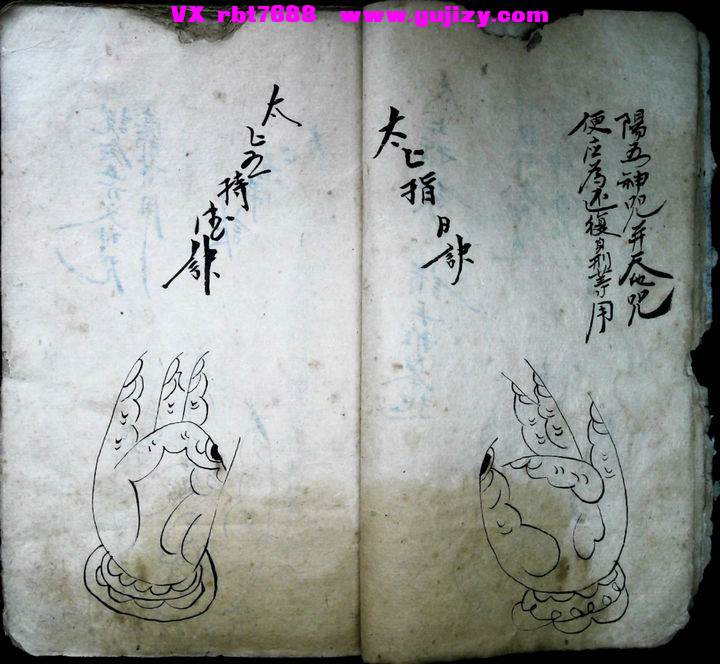 VX rbt7888 www.gujizy.com
陽五神咒并天地咒
便应为还復身刑等用
太上指日訣
太上五持法訣